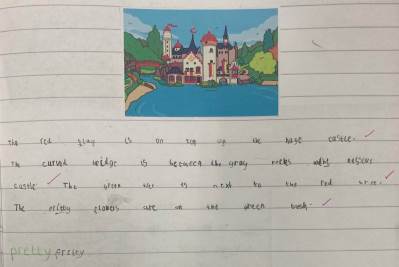 The red flag is on top up the huge castle.
The curved bridge is between the gray rocks and
castle. The green tree is next to the red tree.
The pritty flowers are on the green bush.
pretty pretty